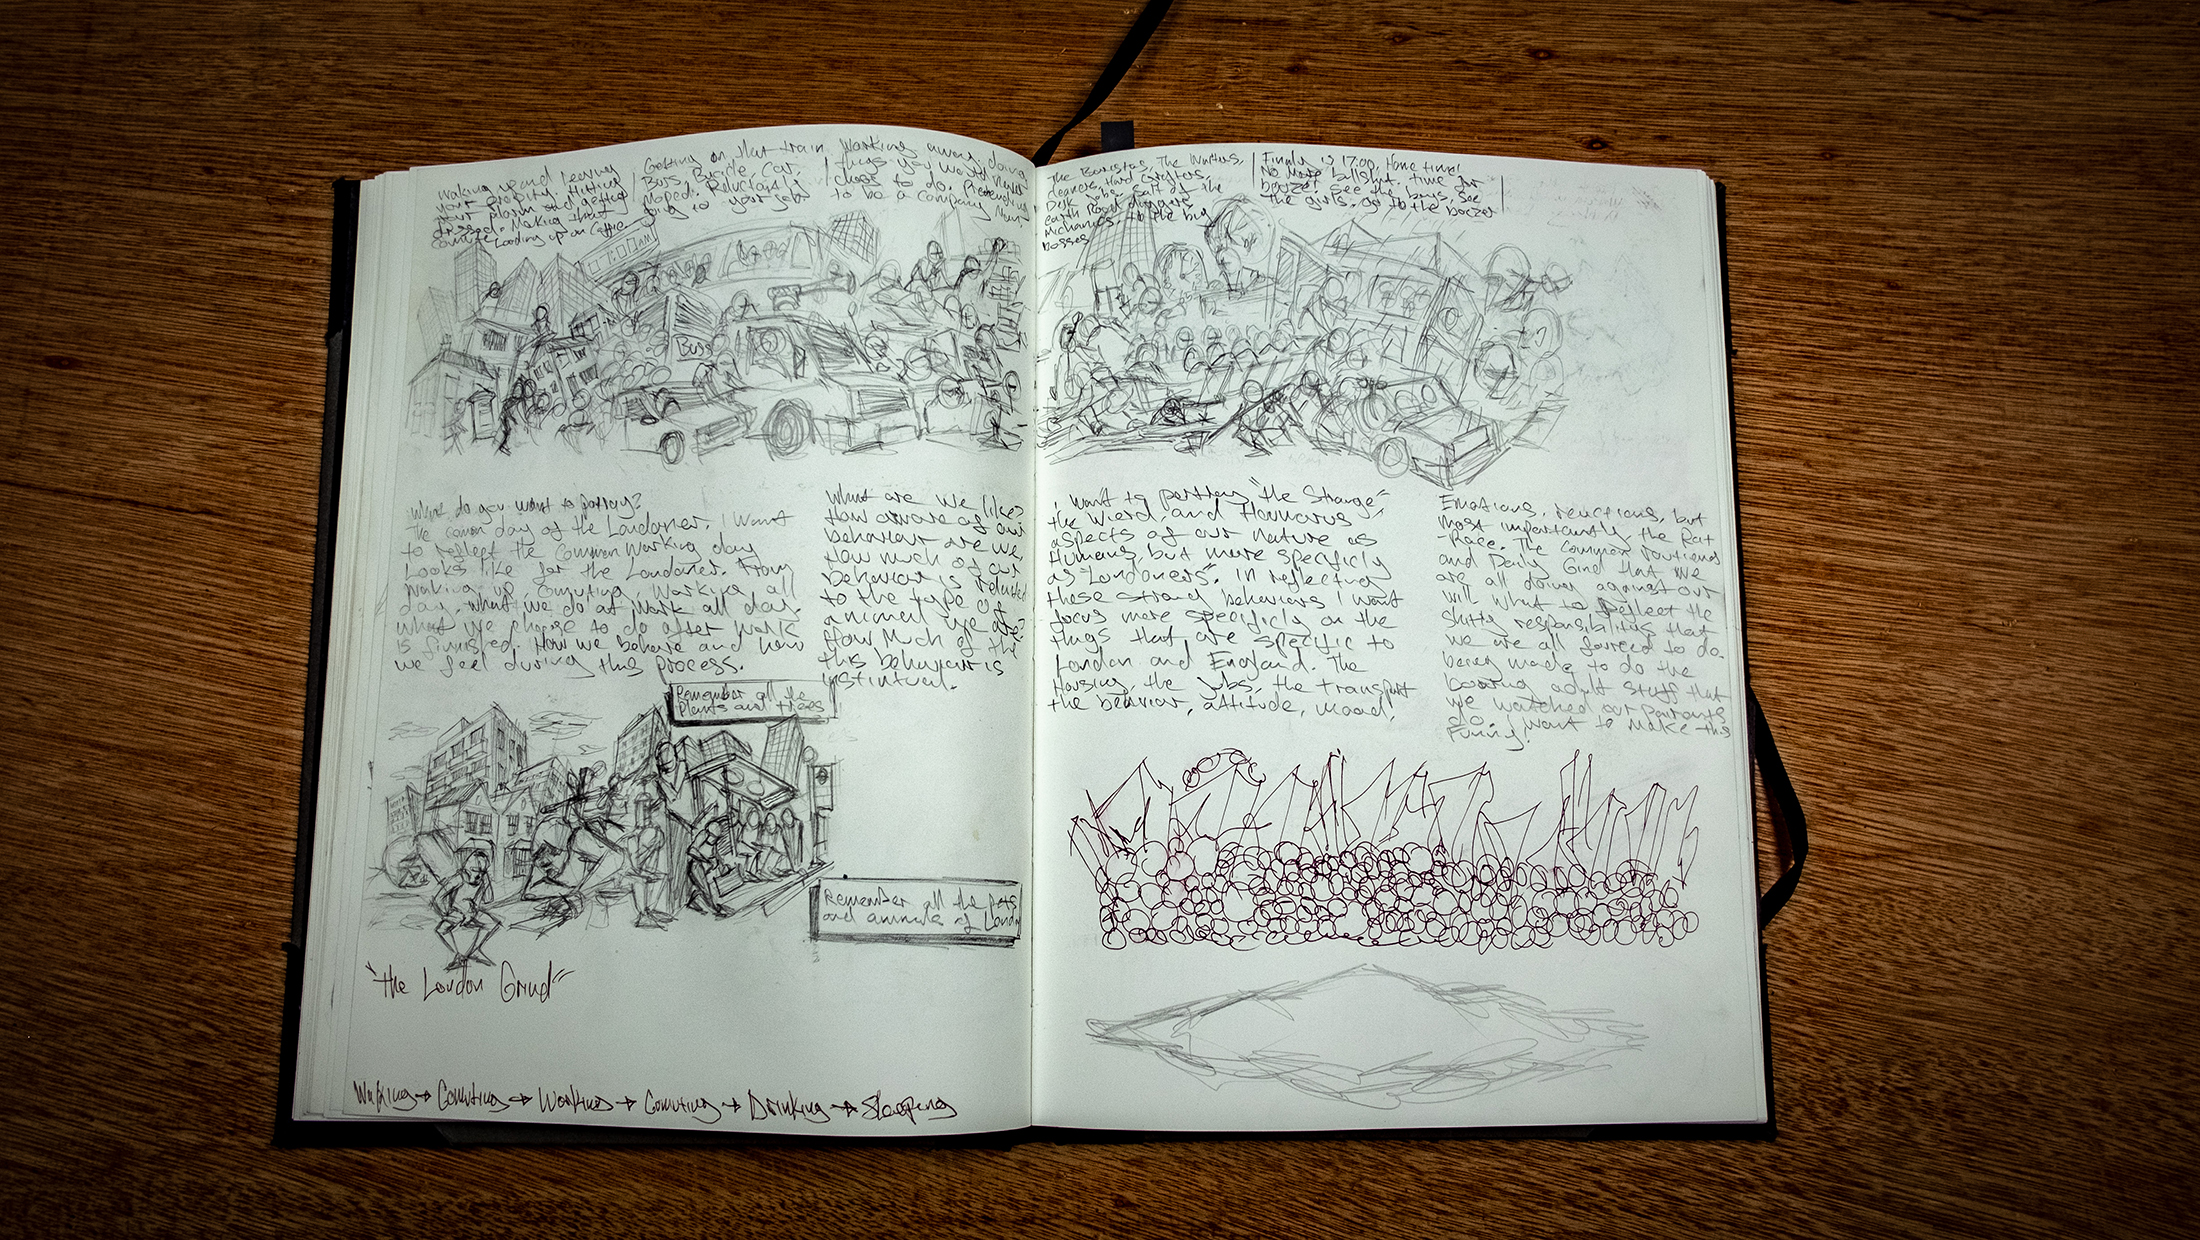 waking up and leaving
your property. Hitting
your alarm and getting
dressed. Making that
comute Loading up on Coffee
Getting on that train
Buss, Bucicle, Car,
Moped. Reluctantly
going to your job
Working away doing
things you would never
chose to do. Pretending
to be a company Man.
The Baristas, The Waiters,
cleaners, Hard Grafters,
Desk Jobs. Salt of the
earth Road diggers
Michanics to the big
bosses
Finaly is 17:00, Home time!
No More bullshit. time for
booze! See the boys. See
The girls. go to the boozer
Buss
What do you want to portray?
The comon day of the Londoner. I Want
to reflect the Common working day
Looks like for the Londoner. From
waking up, Comuting, Working all
day. What we do at work all day.
what we choose to do after work
is finnished. How we behave and how
we feel during this process.
What are we like?
How aware of our
behaviour are we
How much of our
behavior is related
to the type of
animal we are?
How Much of the
this behaviour is
instintual.
i want to portray "the Strange"
the Wierd, and Humarus
aspects of our nature as
Humans, but more specificly
as "Londoners". in reflecting
these strang behaviors I want
focus more specificly on the
thigs that are specific to
London and England. The
Housing, the jobs, the transport
the behavior, attitude, mood,
Emotions, reactions, but
most importantly the Rat
-Race. The Common routiens
and Daily Grind that we
are all doing against our
will. What to reflect the
Shitty responsibilities that
we are all fourced to do.
being made to do the
boaring adult stuff that
we watched our parants
do. I want to make this
Funny.
Remember all the
Plants and trees
Remember all the pets
and animals of London
"the London Grind"
Waking → Comuting → Working → Comuting → Drinking → Sleeping